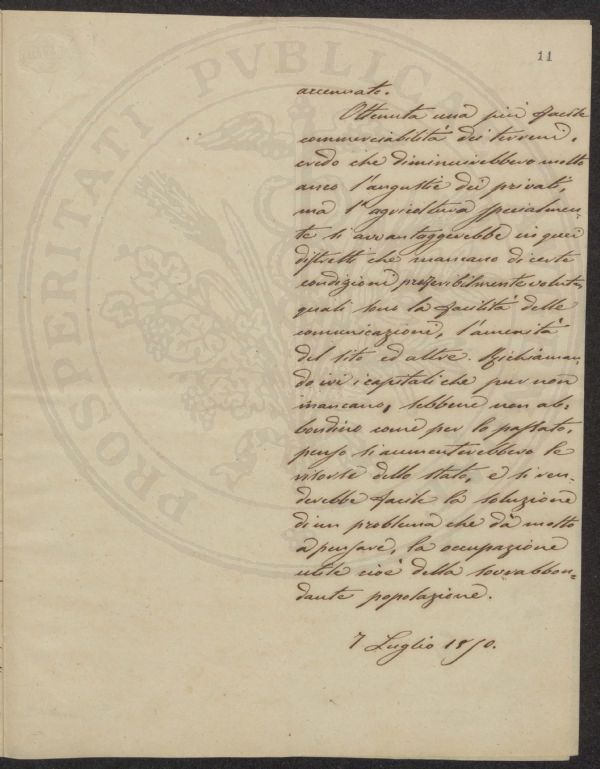 11
accennato.
Ottenuta una più facile
commerciabilità dei terreni,
credo che diminuirebbero molto
anco l'angustie dei privati,
ma l'agricoltura specialmen-
te si avvantaggerebbe in quei
distretti che mancano di certe
condizioni preferibilmente volute,
quali sono la facilità delle
comunicazioni, l'amenità
del sito ed altre. Richiaman-
do ivi i capitali che pur non
mancano, sebbene non ab-
bondino come per lo passato,
penso si aumenterebbero le
risorse dello stato, e si ren-
derebbe facile la soluzione
di un problema che dà molto
a pensare, la occupazione
utile cioè della sovrabbon-
dante popolazione.
7 Luglio 1850.
PROSPERITATI PVBLICA